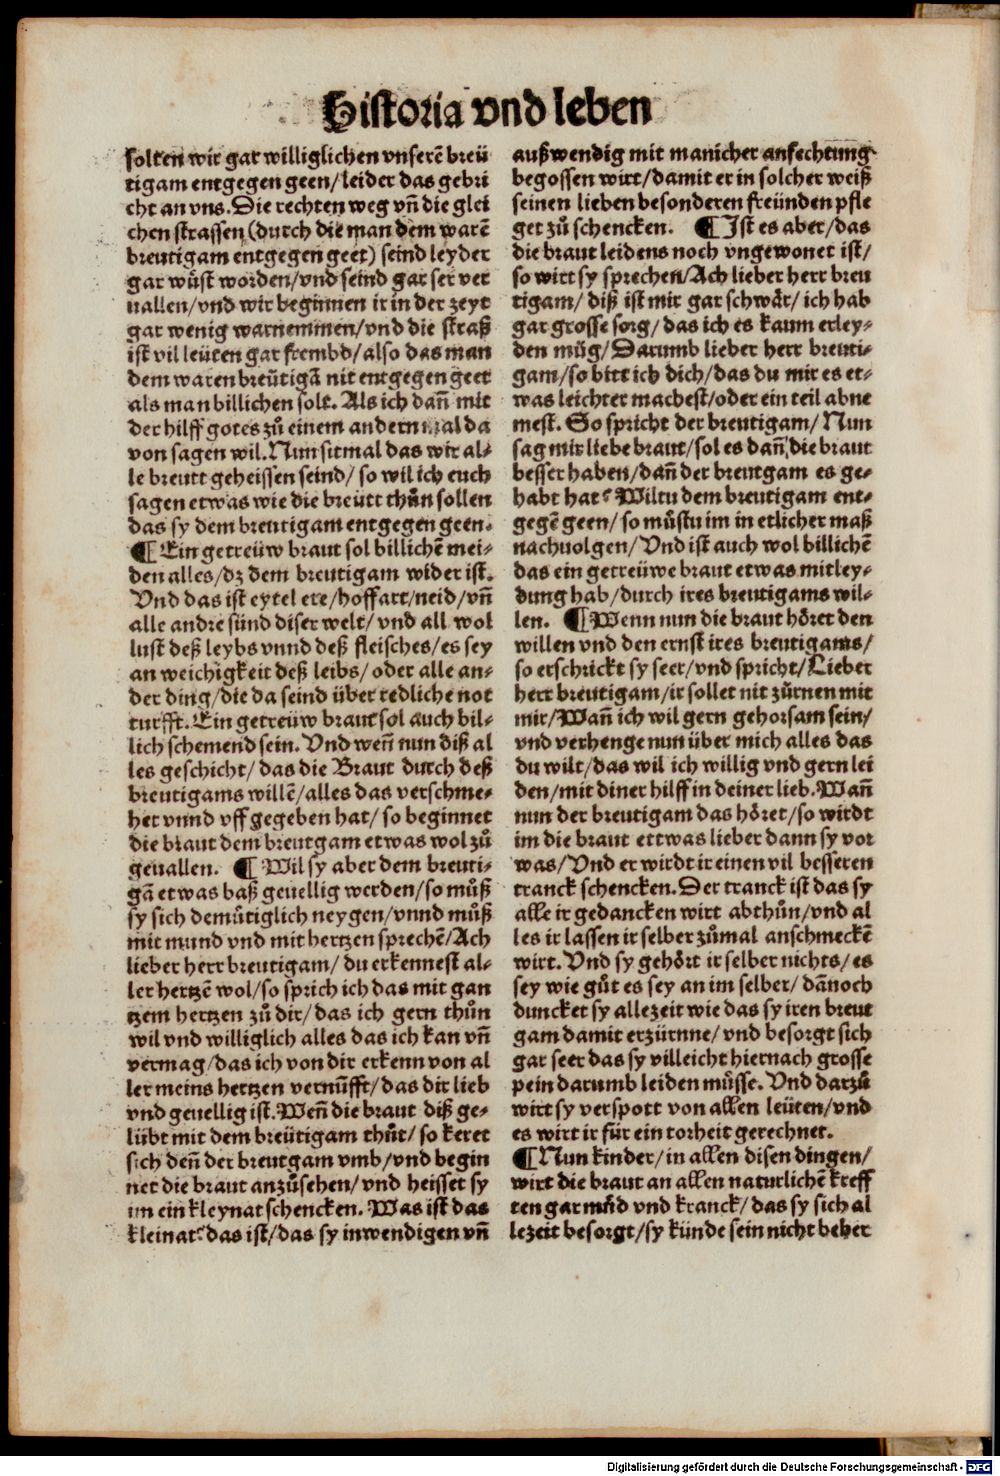 Historia vnd leben
solten wir gar williglichen vnserē breü
tigam entgegen geen/leider das gebri
cht an vns. Die rechten weg vn̄ die glei
chen strassen (durch die man dem warē
breutigam entgegen geet) seind leyder
gar wuͤst worden/vnd seind gar ser ver
uallen/vnd wir beginnen ir in der zeyt
gar wenig warnemmen/vnd die straß
ist vil leüten gar frembd/also das man
dem waren breütigā nit entgegen geet
als man billichen solt. Als ich dan̄ mit
der hilff gotes zuͦ einem andern mal da
von sagen wil. Nun sitmal das wir al-
le breutt geheissen seind/ so wil ich euch
sagen etwas wie die breütt thuͦn sollen
das sy dem breutigam entgegen geen.
¶ Ein getreüw braut sol billichē mei-
den alles/dz dem breutigam wider ist.
Vnd das ist eytel ere/hoffart/neid/vn̄
alle andre sünd diser welt/ vnd all wol
lust deß leybs vnnd deß fleisches/es sey
an weichigkeit deß leibs/ oder alle an-
der ding/die da seind über redliche not
turfft. Ein getreüw braut sol auch bil-
lich schemend sein. Vnd wen̄ nun diß al
les geschicht/ das die Braut durch deß
breutigams willē/alles das verschme-
het vnnd vff gegeben hat/ so beginnet
die braut dem breutgam etwas wol zuͦ
geuallen. ¶ Wil sy aber dem breuti-
gā etwas baß geuellig werden/so muͦß
sy sich demuͤtiglich neygen/vnnd muͦß
mit mund vnd mit hertzen sprechē/Ach
lieber herr breutigam/ du erkennest al-
ler hertzē wol/so sprich ich das mit gan
tzem hertzen zuͦ dir/das ich gern thuͦn
wil vnd williglich alles das ich kan vn̄
vermag/das ich von dir erkenn von al
ler meins hertzen vernūfft/das dir lieb
vnd geuellig ist. Wen̄ die braut diß ge-
lübt mit dem breütigam thuͦt/so keret
sich den̄ der breutgam vmb/vnd begin
net die braut anzuͦsehen/vnd heisset sy
im ein kleynat schencken. Was ist das
kleinat? das ist/das sy inwendigen vn̄
außwendig mit manicher anfechtung
begossen wirt/damit er in solcher weiß
seinen lieben besonderen freünden pfle
get zuͦ schencken. ¶ Ist es aber/das
die braut leidens noch vngewonet ist/
so wirt sy sprechen/Ach lieber herr breu
tigam/ diß ist mir gar schwaͤr/ich hab
gar grosse sorg/das ich es kaum erley-
den müg/Darumb lieber herr breuti-
gam/so bitt ich dich/das du mir es et-
was leichter machest/oder ein teil abne
mest. So spricht der breutigam/Nun
sag mir liebe braut/sol es dan̄ die braut
besser haben/dan̄ der breutgam es ge-
habt hat? Wiltu dem breutigam ent-
gegē geen/so muͦstu im in etlicher maß
nachuolgen/Vnd ist auch wol billichē
das ein getreüwe braut etwas mitley-
dung hab/durch ires breutigams wil-
len. ¶ Wenn nun die braut hoͤret den
willen vnd den ernst ires breutigams/
so erschrickt sy seer/vnd spricht/Lieber
herr breutigam/ir sollet nit zürnen mit
mir/Wan̄ ich wil gern gehorsam sein/
vnd verhenge nun über mich alles das
du wilt/das wil ich willig vnd gern lei
den/mit diner hilff in deiner lieb. Wan̄
nun der breutigam das hoͤret/so wirdt
im die braut ettwas lieber dann sy vor
was/Vnd er wirdt ir einen vil besseren
tranck schencken. Der tranck ist das sy
alle ir gedancken wirt abthuͦn/vnd al
les ir lassen ir selber zuͦmal anschmeckē
wirt. Vnd sy gehoͤrt ir selber nichts/es
sey wie guͦt es sey an im selber/dānoch
duncket sy allezeit wie das sy iren breut
gam damit erzürnne/vnd besorgt sich
gar seer das sy villeicht hiernach grosse
pein darumb leiden muͤsse. Vnd darzuͦ
wirt sy verspott von allen leüten/vnd
es wirt ir für ein torheit gerechnet.
¶ Nun kinder/in allen disen dingen/
wirt die braut an allen naturlichē kreff
ten gar muͤd vnd kranck/das sy sich al
lezeit besorgt/sy künde sein nicht beher
Digitalisierung gefördert durch die Deutsche Forschungsgemeinschaft - DFG